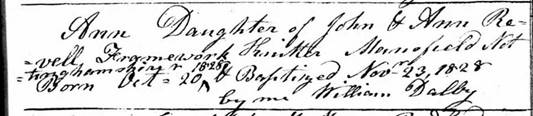 Ann Daughter of John & Ann Re-
=vell Framework Knitter Mansfield Not
=tinghamshire 1828
Born Oct= 20 & Baptized Novr 23, 1828
by me William Dalby